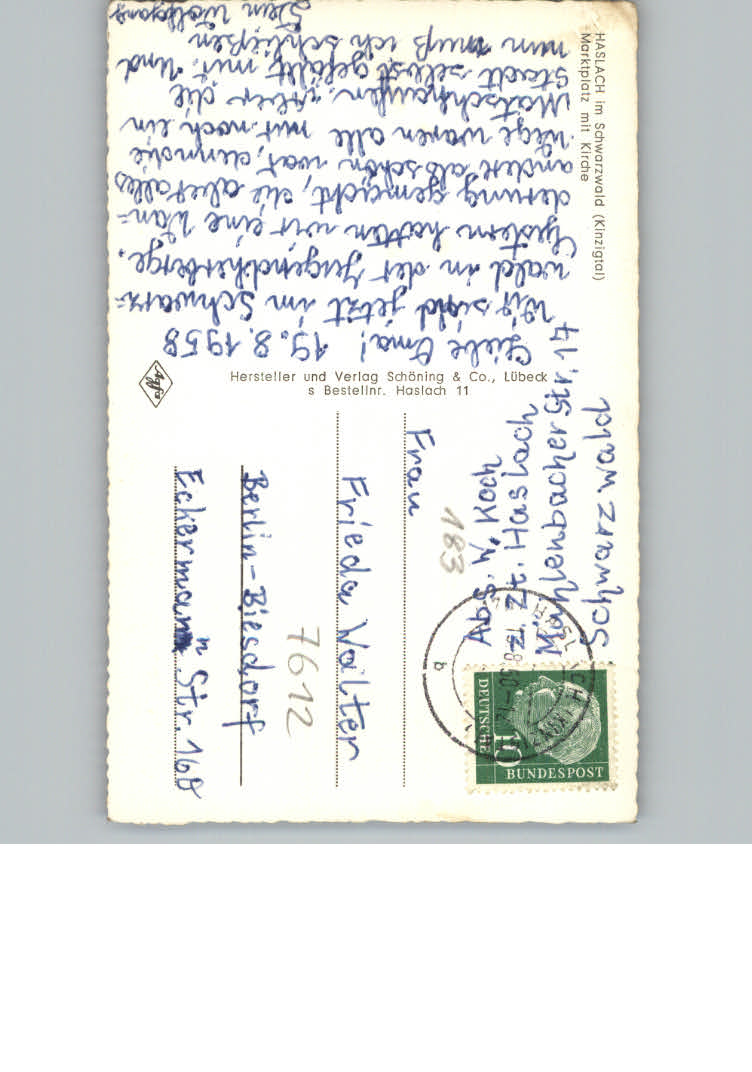 HASLACH im Schwarzwald (Kinzigtal)
Marktplatz mit Kirche
Liebe Oma! 19.8.1958
Wir sind jetzt im Schwarz-
wald in der Jugendherberge.
Gestern hatten wir eine Wan-
derung gemacht, die aber alles
andere als schön war, denn die
Wege waren alle nur noch ein
Matschhaufen. Aber die
Stadt selbst gefällt mir. Und
nun muß ich schließen
Dein Wolfgang
Hersteller und Verlag Schöning & Co., Lübeck
s Bestellnr. Haslach 11
Agfa
Abs. W. Koch
z. Zt. Haslach
Mühlenbacher Str. 14
Schwarzwald
DEUTSCHE
BUNDESPOST
10
b
183
Frau
Frieda Walter
7612
Berlin-Biesdorf
Eckermann Str. 160